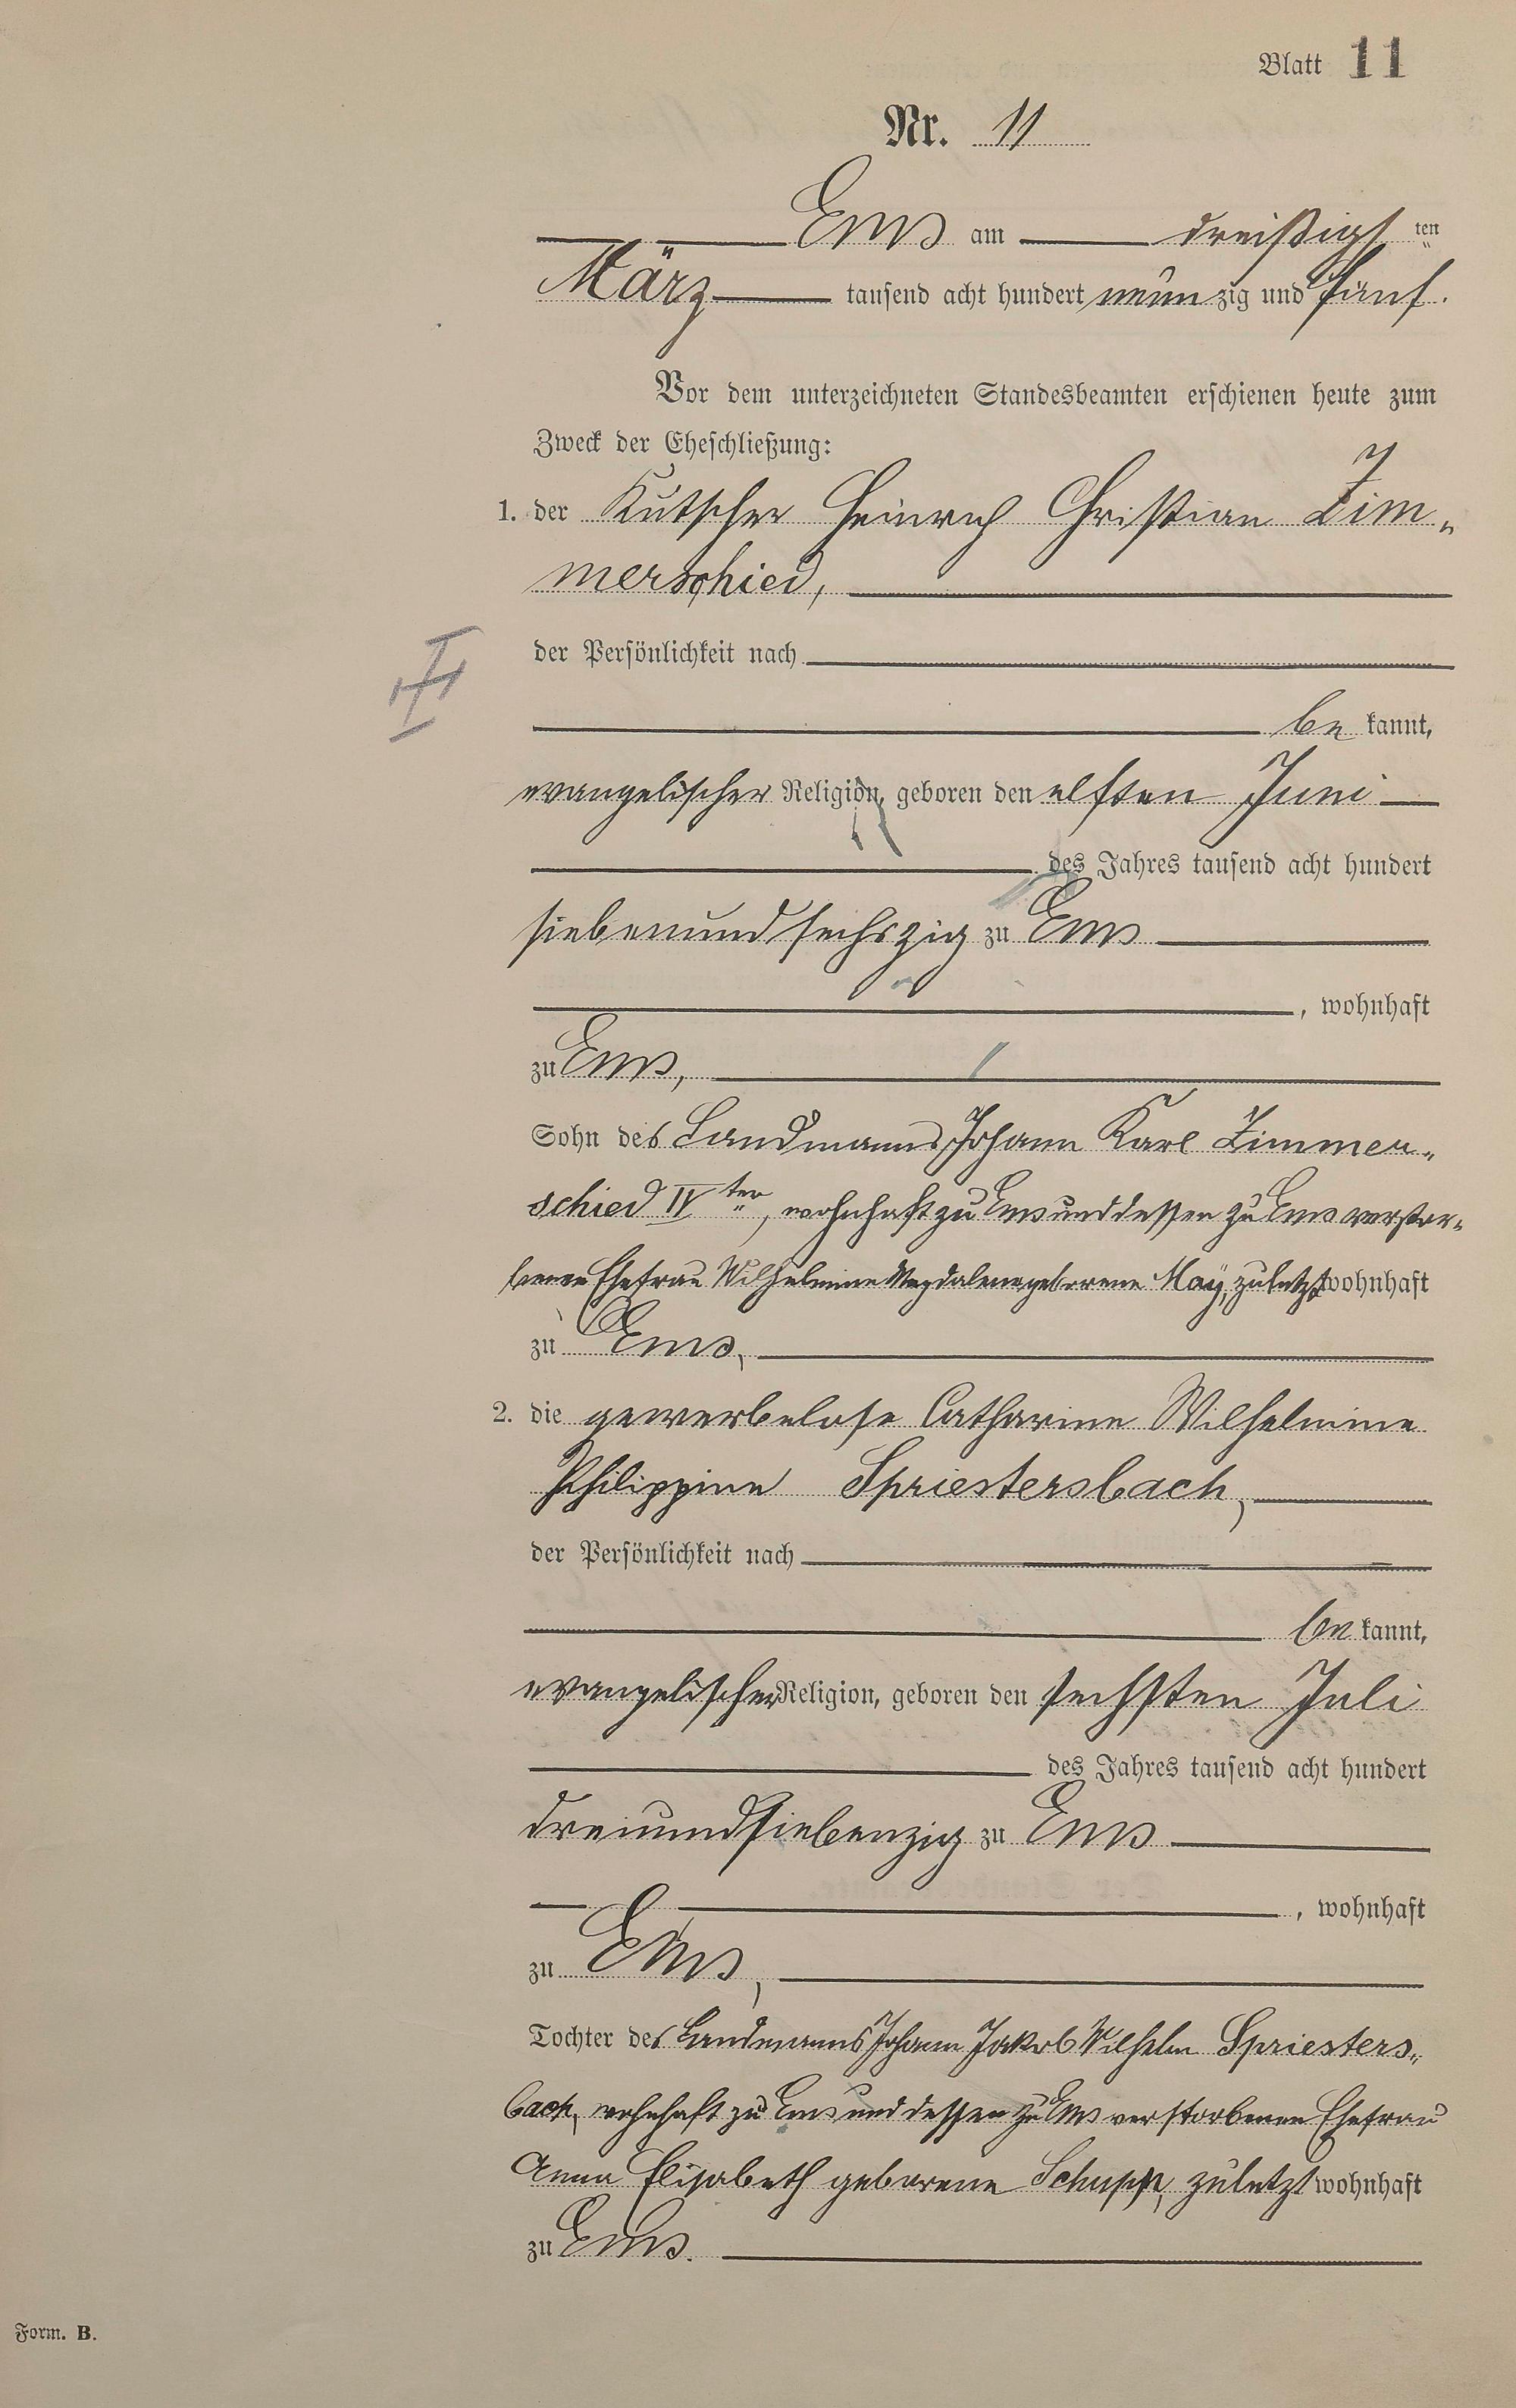 Blatt 11
Nr. 11
Ems am dreißigsten
März tausend acht hundert neunzig und fünf.
Vor dem unterzeichneten Standesbeamten erschienen heute zum
Zweck der Eheschließung:
1. der Kutscher Heinrich Christian Zim-
merschied,
der Persönlichkeit nach
bekannt,
evangelischer Religion, geboren den elften Juni
des Jahres tausend acht hundert
siebenundsechszig zu Ems
, wohnhaft
zu Ems,
Sohn des Landmanns Johann Karl Zimmer-
schied IVter, wohnhaft zu Ems und dessen zu Ems verstor-
benen Ehefrau Wilhelmine Magdalene geborene Maÿ, zuletzt wohnhaft
zu Ems,
2. die gewerbelose Catharine Wilhelmine
Philippine Spriestersbach,
der Persönlichkeit nach
bekannt,
evangelischer Religion, geboren den sechsten Juli
des Jahres tausend acht hundert
dreiundsiebenzig zu Ems
, wohnhaft
zu Ems,
Tochter des Landmanns Johann Jakob Wilhelm Spriesters-
bach, wohnhaft zu Ems und dessen zu Ems verstorbenen Ehefrau
Anna Elisabeth geborene Schupp, zuletzt wohnhaft
zu Ems.
Form. B.